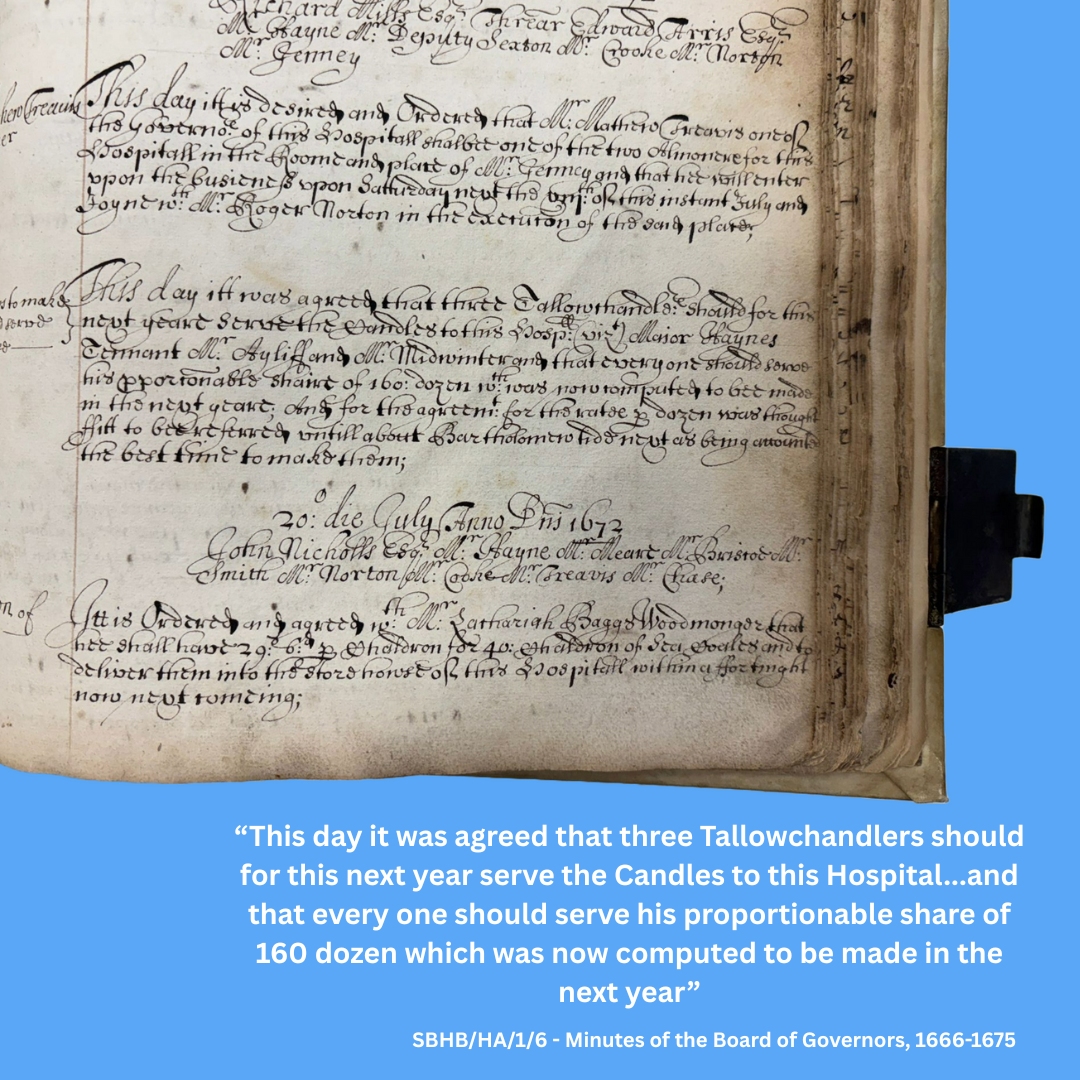 Richard Mills Esqr. Threar Edward Arris Esqr.
Mr. Hayne Mr. Deputy Sexton Mr. Cooke Mr. Norton
Mr. Jenney
This day itt is desired and Ordered that Mr. Mathew Treavis one of
the Governors. of this Hospitall shalbee one of the two Almoners for this
Hospitall in the Roome and place of Mr. Jenney and that hee will enter
upon the busieness upon Satturday next the of this instant July and
Joyne wth. Mr. Roger Norton in the execution of the said place;
This day itt was agreed that three Tallowchandlers. should for this
s to make
next yeare serve the Candles to this Hospll: (vizt) Major Haynes
d serve
Tennant Mr. Ayliff and Mr. Midwinter and that every one should serve
his pportonable share of 160: dozen wch: was now computed to bee made
in the next yeare; And for the agreemt: for the rates p dozen was thought
ffitt to bee referred untill about Bartholomew tide next as being
the best time to make them;
20:o die July Anno Dni 1672
John Nicholls Esqr. Mr. Hayne Mr. Meare Mr. Bristoe Mr.
Smith Mr. Norton Mr. Cooke Mr. Treavis Mr. Chase;
n of
Itt is Ordered and agreed wth. Mr. Zachariah Baggs Woodmonger that
hee shall have 29s. 6:d p Chaldron for 40: Chaldron of Sea Coales and to
deliver them into the storehowse of this Hospitall within a ffortnight
now next comeing;
“This day it was agreed that three Tallowchandlers should
for this next year serve the Candles to this Hospital...and
that every one should serve his proportionable share of
160 dozen which was now computed to be made in the
next year”
SBHB/HA/1/6 - Minutes of the Board of Governors, 1666-1675